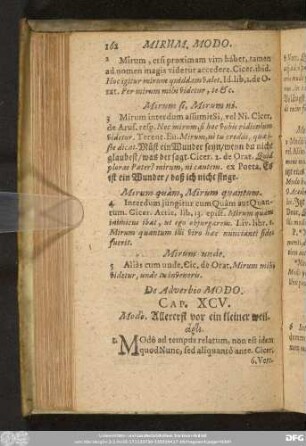 162 MIRUM, MODO.
2 Mirum, etsi proximam vim habet, tamen
ad nomen magis videtur accedere. Cicer. ibid.
Hoc igitur mirum quiddam habet. Id. lib. 2. de O-
rat. Per mirum mihi videtur, te &c.
Mirum si, Mirum ni.
3 Mirum interdum assumit Si, vel Ni. Cicer.
de Arus. resp. Nec mirum, si hoc Vobis ridiculum
videtur. Terent. Eu. Mirum, ni tu credis, quod
iste dicat. Müst ein Wunder seyn/wenn du nicht
glaubest/was der sagt. Cicer. 2. de Orat. Quid
ploras Pater? mirum, ni cantem. ex Poeta. Es
ist ein Wunder/daß ich nicht singe.
Mirum quàm, Mirum quantum.
4 Interdum jungitur cum Quàm aut Quan-
tum. Cicer. Attic. lib. 15. epist. Mirum quàm
inimicus ibat, ut ego objurgarem. Liv. libr. 2.
Mirum quantum illi viro hæc nuncianti fides
fuerit.
Mirum unde.
5 Aliàs cum unde, Cic. de Orat. Mirum mihi
videtur, unde tu inveneris.
De Adverbio MODO.
CAP. XCV.
Modo. Allererst vor ein kleiner weil
MOdò ad tempus relatum, non est idem
quod Nunc, sed aliquantò ante. Cicer.
6. Verr.